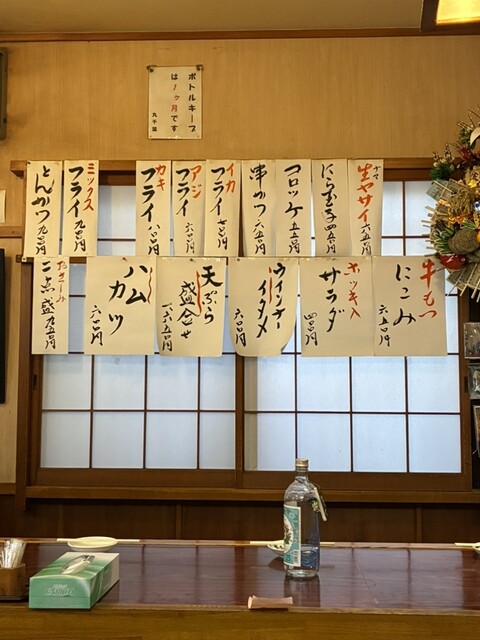 ボトルキープ
は1ヶ月です
丸千葉
生ヤサイ
六五〇円
にら玉子
四五〇円
コロッケ
五五〇円
串かつ
六五〇円
イカ
フライ
アジ
フライ
カキ
フライ
八〇〇円
ミックス
フライ
九〇〇円
とんかつ
九〇〇円
牛もつ
にこみ
六五〇円
ホッキ入
サラダ
四〇〇円
ウインナー
イタメ
六〇〇円
天ぷら
盛合せ
一、六五〇円
ハム
カツ
六〇〇円
二点盛
九五〇円